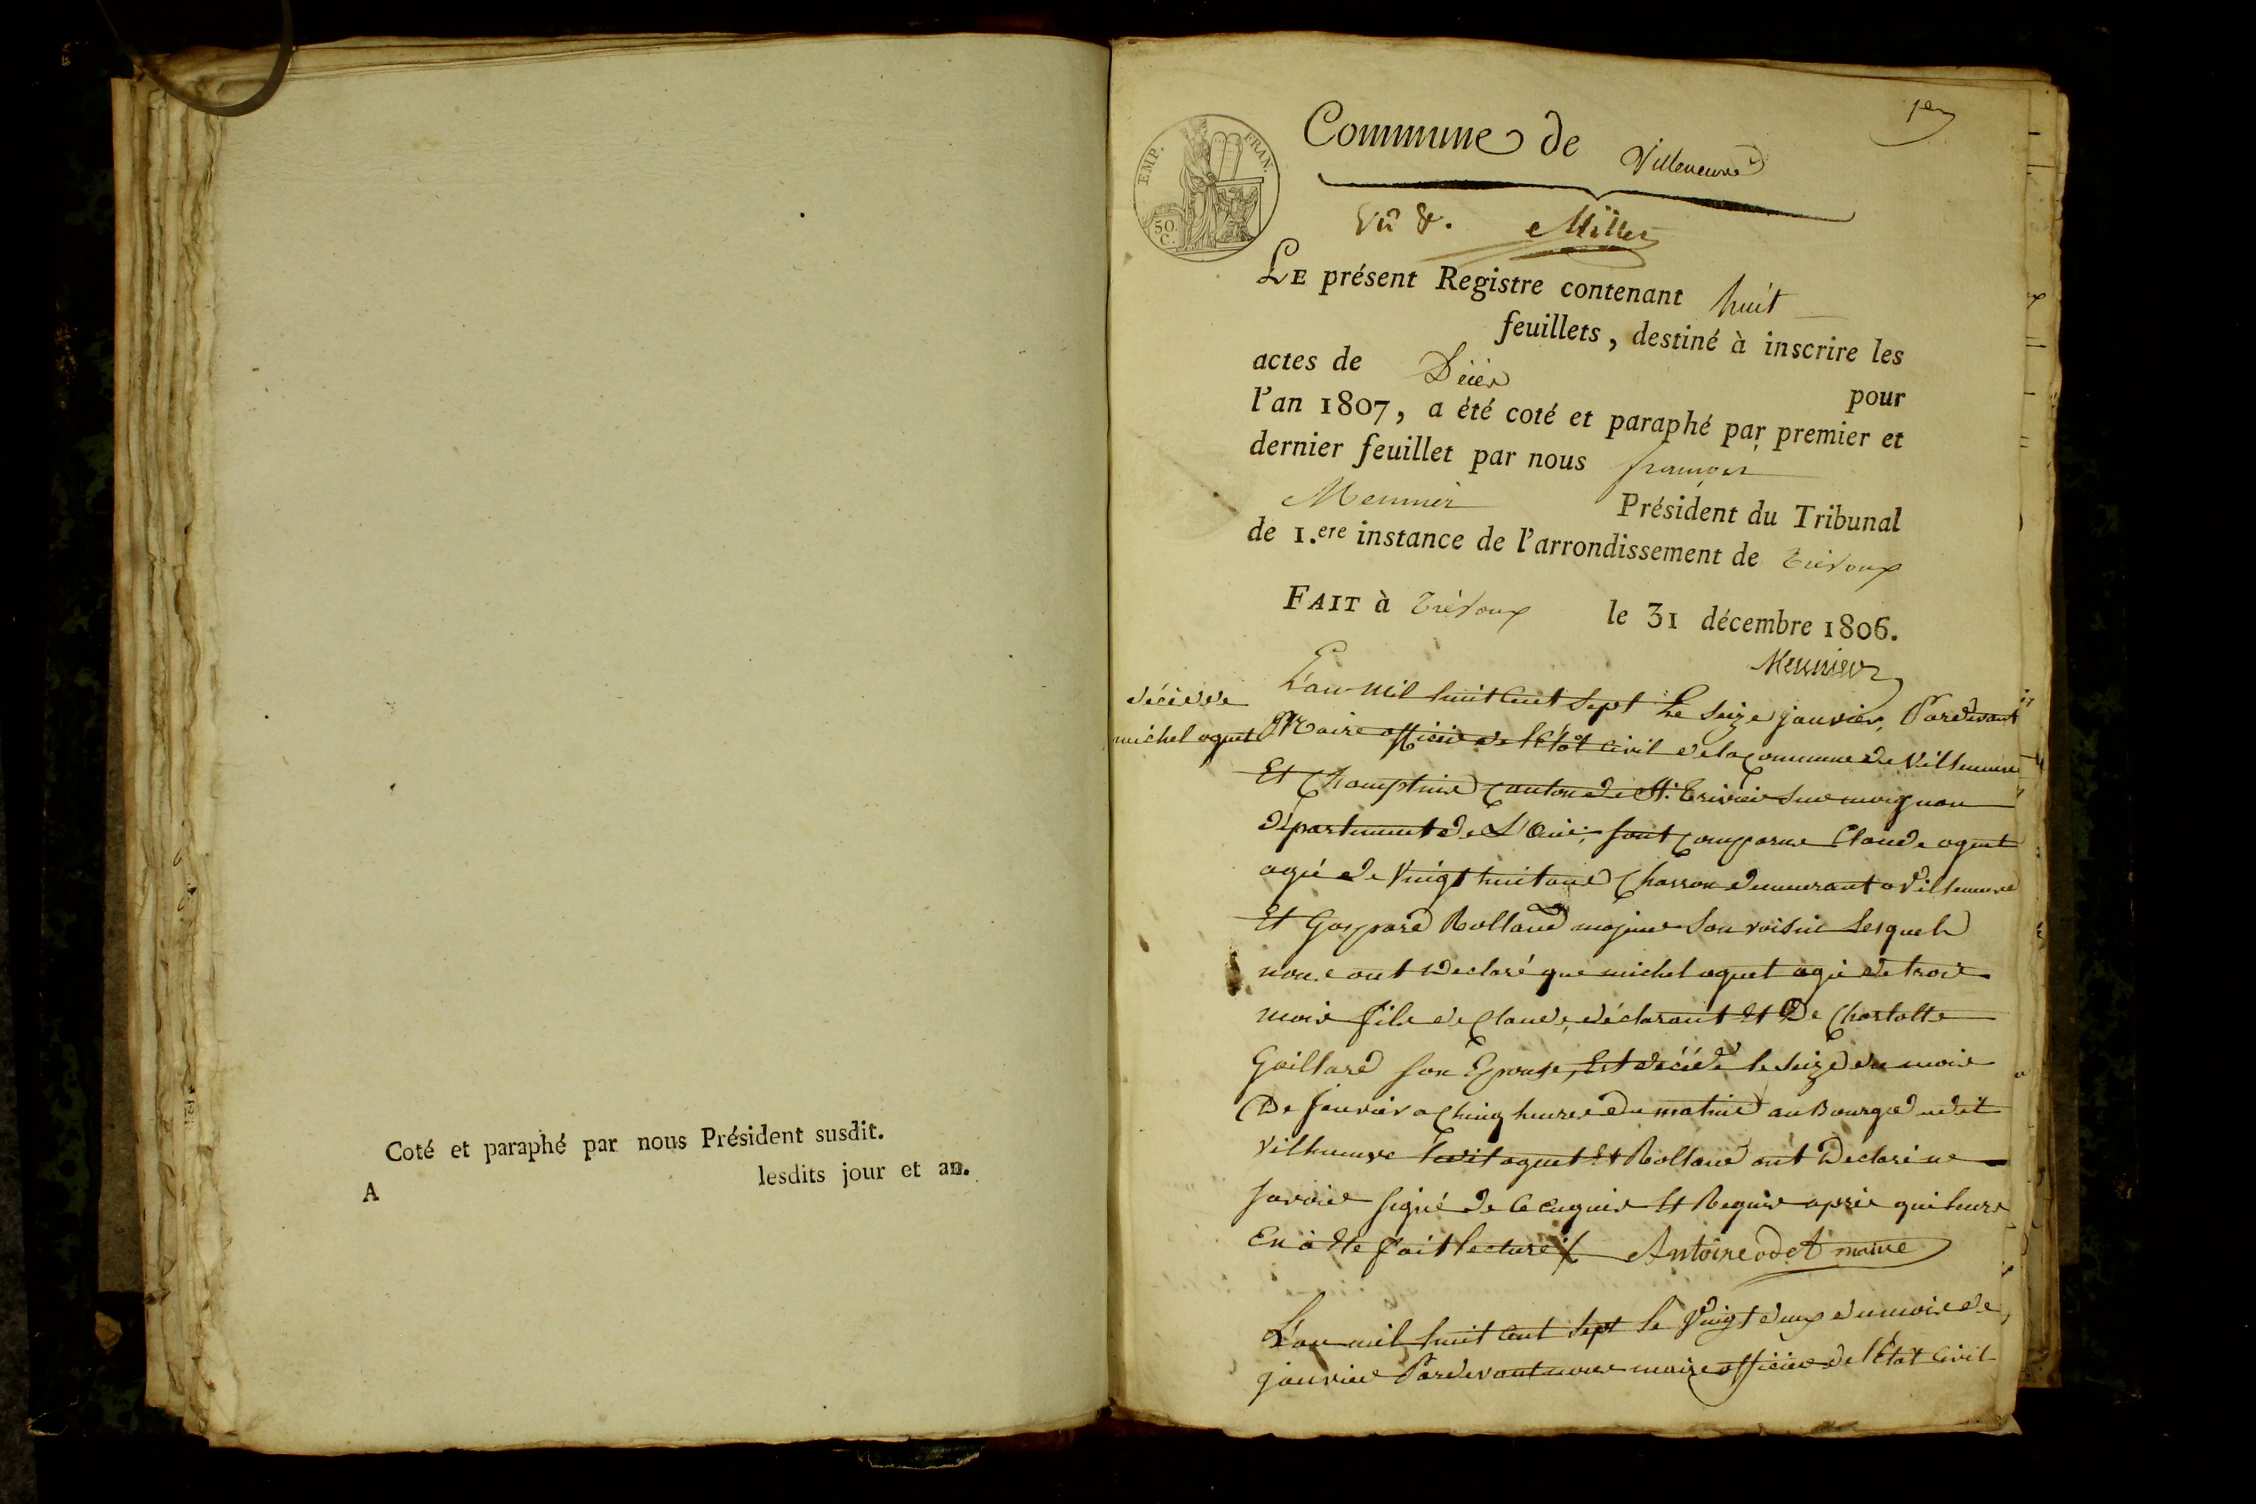 Coté et paraphé par nous Président susdit.
lesdits jour et an.
A
1er
EMP. FRAN.
50.
C.
Commune de Villeneuve
Vû &. Millet
LE présent Registre contenant huit
feuillets, destiné à inscrire les
actes de Décès pour
l'an 1807, a été coté et paraphé par premier et
dernier feuillet par nous françois
Meunier Président du Tribunal
de 1.ere instance de l'arrondissement de Trévoux
FAIT à Trévoux le 31 décembre 1806.
Meunier
décès de
michel oguet
L'an mil huit Cent Sept Le Seize janvier, Pardevant
Maire officier de l'Etat Civil de la Commune de Villeneuve
Et Champteins Canton de St. Trivier Sur moignan
département de L'Ain, sont comparus Claude oguet
agé de Vingt huit ans Charron demeurant a Villeneuve
Et Gaspard Rolland majeur Son voisin Lesquels
nous ont Declaré que michel oguet agé de trois
mois fils de Claude, déclarant Et De Charlotte
Gaillard son Epouse, Est décédé le Seize du mois
De Janvier a Cinq heures du matin au Bourg dudit
Villeneuve Oguet Et Rolland ont Declaré ne
savoir signé de ce Enquis Et Requis après que leurs
En a Ete fait lecture Antoine odet maire
L'an mil huit Cent Sept le Vingt deux du mois de
janvier Pardevant nous maire officier de l'Etat Civil